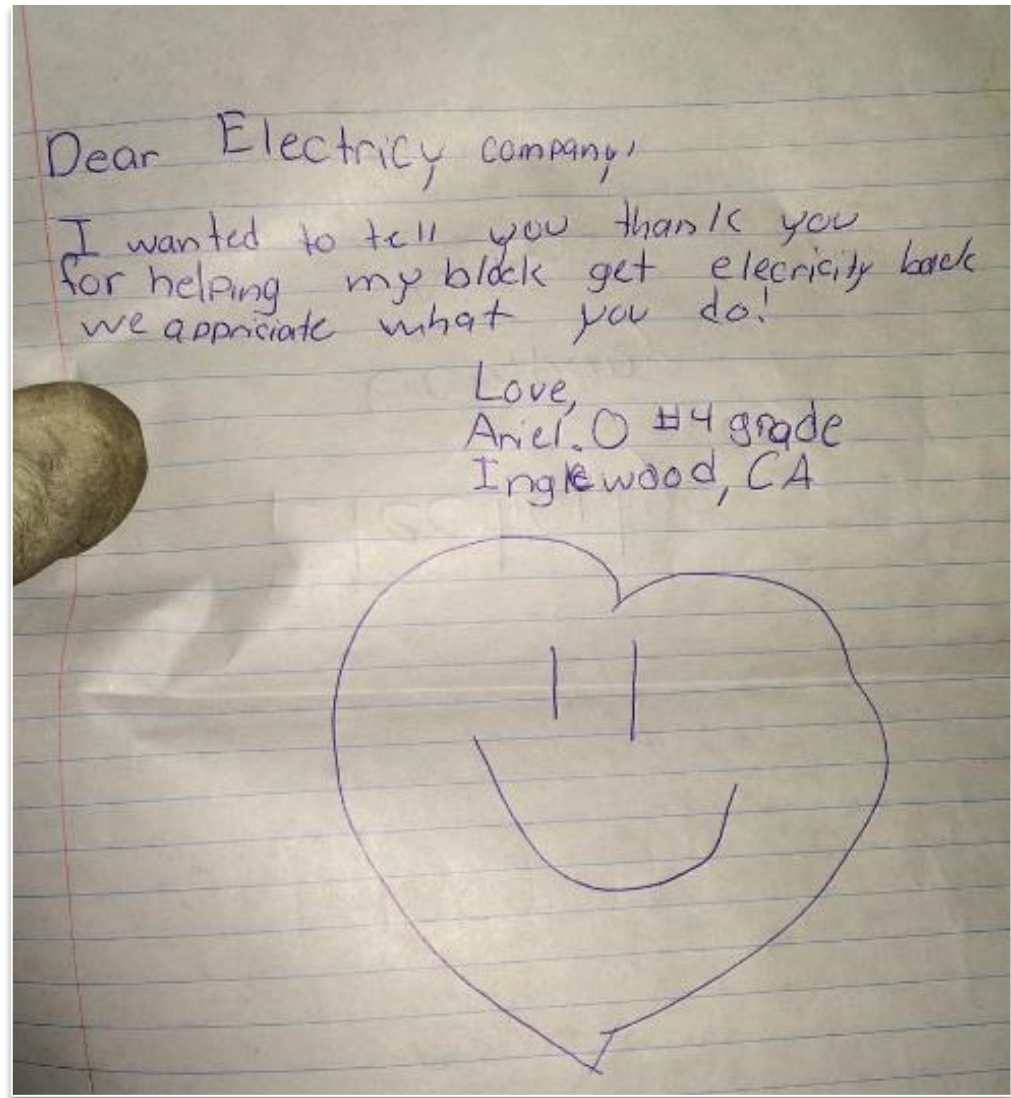 Dear Electricy company,
I wanted to tell you thank you
for helping my block get elecricity back
we appriciate what you do!
Love,
Ariel.O #4 grade
Inglewood, CA